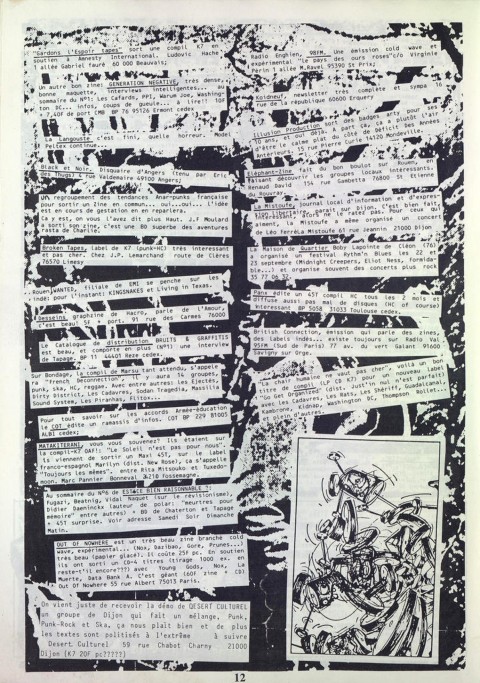 "Gardons l'Espoir tapes" sort une compil K7 en
soutien à Amnesty International. Ludovic Haché
1 allée Gabriel Fauré 60 000 Beauvais;
Un autre bon zine: GENERATION NEGATIVE, très dense,
bonne maquette, interviews intelligentes... au
sommaire du N°1: Les Cafards, PPI, Warum Joe, Washing-
ton DC... infos, coups de gueule... à lire!! 10F
+ 7,40F de port CMB BP 76 95126 Ermont cedex
La Langouste c'est fini, quelle horreur. Model
Peltex continue...
Black et Noir. Disquaire d'Angers (tenu par Eric
des Thugs) rue Valdemaire 49100 Angers;
Un regroupement des tendances Anar-punks française
pour sortir un Zine en commun... ou...ou... l'idée
est en cours de gestation on en reparlera.
Ca y est, on vous l'avait dit plus haut. J.F Moulard
a sorti son zine, c'est une BD superbe des aventures
rasta de Charlie.
Broken Tapes, label de K7 (punk+HC) très interessant
et pas cher. Chez J.P. Lemarchand route de Clères
76570 Limesy
Rouen WANTED, filiale de EMI se penche sur les
indé: pour l'instant: KINGSNAKES et Living in Texas.
Desseins graphzine de MACRO, parle de l'Amour,
c'est beau! 5F + port. 91 rue des Carmes 76000
Le Catalogue de distribution BRUITS & GRAFFITIS
est beau, et comporte en plus (N°1) une interview
de Tapage. BP 11 44401 Reze cedex.
Sur Bondage, la compil de Marsu tant attendu, s'appele
"French Deconnection". Il y aura 14 groupes,
punk, ska, HC, reggae. Avec entre autres: Les Ejectés,
Dirty District, Les Cadavres, Sodan Tragedia, Massilia
Sound System, Les Piranhas, Flitox...
Pour tout savoir sur les accords Armée-éducation
le COT édite un ramassis d'infos. COT BP 229 81003
ALBI cedex;
MATAKITERANI, vous vous souvenez? Ils étaient sur
la compil-K7 OAF!: "Le Soleil n'est pas pour nous".
ils viennent de sortir un Maxi 45T, sur le label
franco-espagnol Marilyn (dist. New Rose), ca s'appele
"Toujours les mêmes". entre Rita Mitsouko et Tuxedo-
moon. Marc Pannier Bonneval 24210 Fossemagne.
Au sommaire du N°6 de ESTACE BIEN RAISONNABLE?:
Fugazi, Beatnig, Vidal Naquet (sur le révisionisme),
Didier Daeninckx (auteur de polar: "meurtres pour
mémoire" entre autres) + BD de Chaterton et Tapage
+ 45T surprise. Voir adresse Samedi Soir Dimanche
Matin.
OUT OF NOWHERE est un très beau zine branché cold
wave, expérimental... (Nox, Dazibao, Gore, Prunes...)
très beau (papier glacé). Il coûte 25F pc. En soutien
ils ont sorti un CD+4 titres (tirage 1000 ex. en
reste-t'il encore???) avec Young Gods, Nox, La
Muerte, Data Bank A. C'est géant (60F zine + CD)
Out Of Nowhere 55 rue Albert 75013 Paris.
On vient juste de recevoir la démo de DESERT CULTUREL
un groupe de Dijon qui fait un mélange, Punk,
Punk-Rock et Ska, ça nous plaît bien et de plus
les textes sont politisés à l'extrême à suivre
Desert Culturel 59 rue Chabot Charny 21000
Dijon (K7 20F pc?????)
Radio Enghien, 98FM. Une émission cold wave et
expérimental "le pays des ours roses"c/o Virginie
Périn 1 allée M.Ravel 95390 St Prix;
Koidneuf, newsletter très complete et sympa 16
rue de la république 60600 Erquery
Illusion Production sort des badges arts pour ses
10 ans, et oui déjà. A part ça, ça a plutôt l'air
d'être le calme plat du coté de Déficit des Années
Antérieurs, 15 rue Pierre Curie 14120 Mondeville.
Eléphant-Zine fait du bon boulot sur Rouen, en
faisant découvrir les groupes locaux intéressants.
Renaud David 154 rue Gambetta 76800 St Etienne
du Rouvray.
La Mistoufle, journal local d'information et d'expres-
sion libertaire, parait sur Dijon. C'est bien fait,
interessant, alors ne la ratez pas. Pour ceux qui
aiment, Mistoufle a même organisé un concert
de Léo Ferré. La Mistoufle 61 rue Jeannin 21000 Dijon
La Maison de Quartier Boby Lapointe de Cléon (76)
a organisé un festival Rythm'n Blues les 22 et
23 septembre (Midnight Creepers, Eliot Ness, Formida-
ble...) et organise souvent des concerts plus rock
35 77 06 32
Pans édite un 45T compil HC tous les 2 mois et
diffuse aussi pas mal de disques (HC of course)
Interessant BP 5058 31033 Toulouse cedex.
British Connection, émission qui parle des zines,
des labels indés... existe toujours sur Radio Val
95FM (Sud de Paris) 77 av. du vert Galant 91600
Savigny sur Orge.
"La chair humaine ne vaut pas cher", voilà un bon
titre de compil (LP CD K7) pour un nouveau label
"Go Get Organized" (dist. Just'in nul n'est parfait)
avec Les Cadavres, Les Satellites, Guadalcanal,
Kambrone, Kidnap, Washington DC, Thompson Rollet...
et plein d'autres.
12